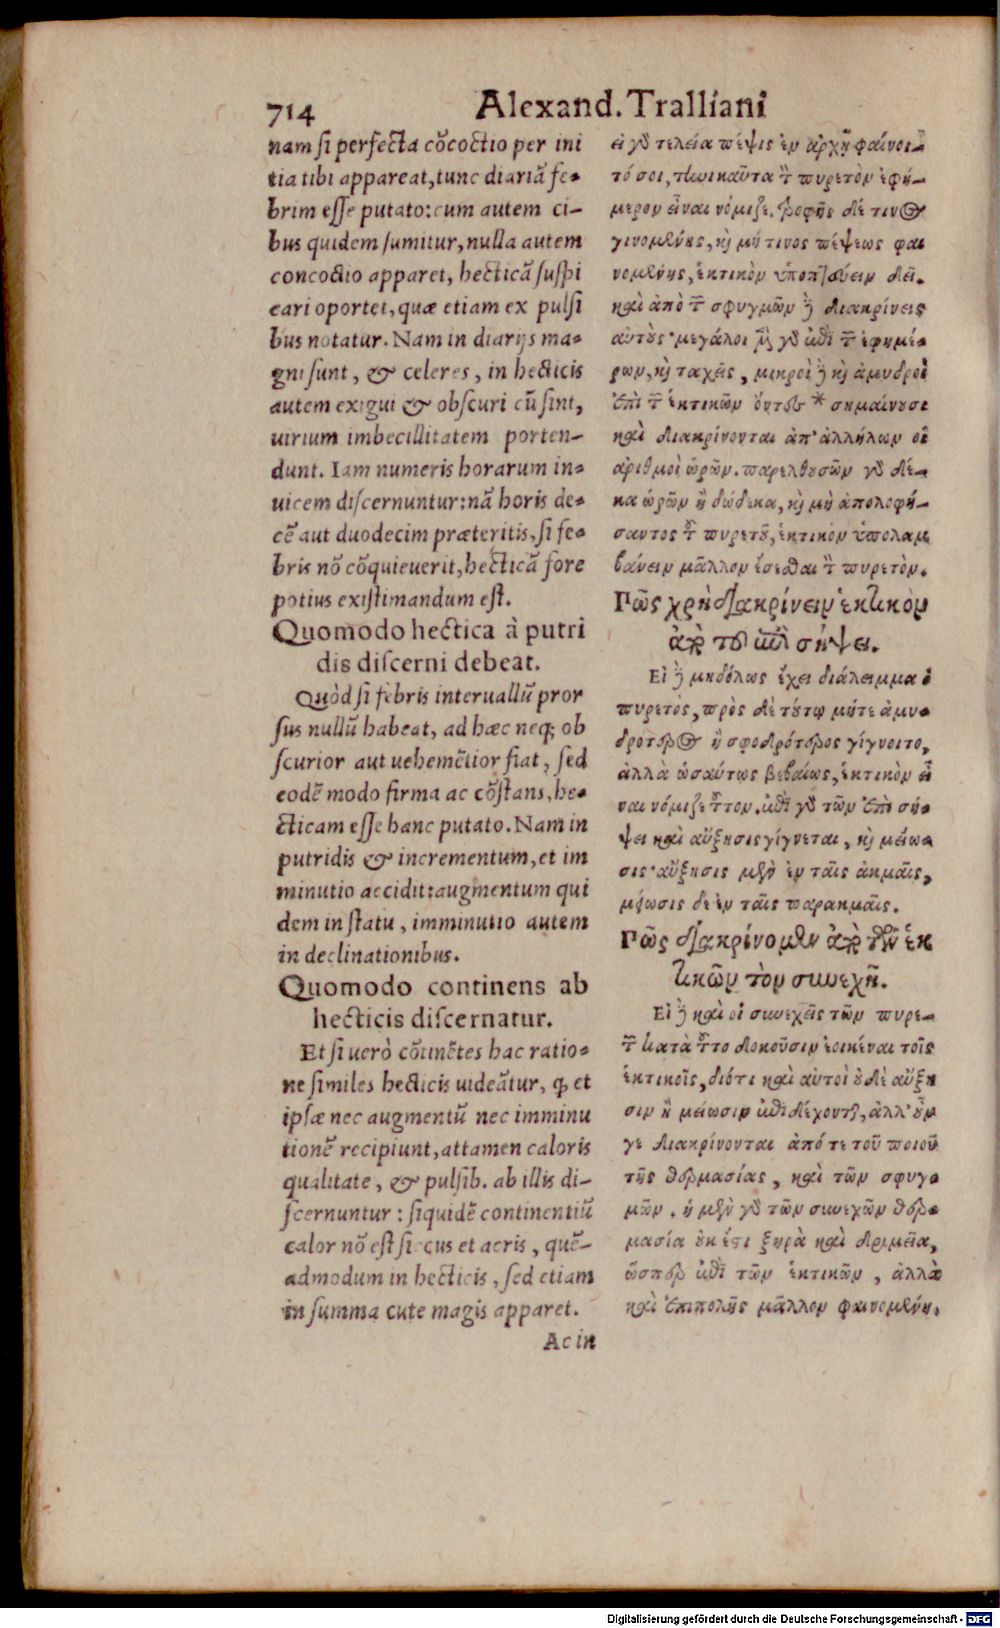 714 Alexand. Tralliani
nam si perfecta cõcoctio per ini
tia tibi appareat, tunc diariã fe-
brim esse putato: cum autem ci-
bus quidem sumitur, nulla autem
concoctio apparet, hecticã suspi
cari oportet, quæ etiam ex pulsi
bus notatur. Nam in diarijs ma-
gni sunt, & celeres, in hecticis
autem exigui & obscuri cũ sint,
uirium imbecillitatem porten-
dunt. Iam numeris horarum in-
uicem discernuntur: nã horis de-
cẽ aut duodecim præteritis, si fe-
bris nõ cõquieuerit, hecticã fore
potius existimandum est.
Quomodo hectica à putri
dis discerni debeat.
Quòd si febris interuallũ pror
sus nullũ habeat, ad hæc neq; ob
scurior aut uehemẽtior fiat, sed
eodẽ modo firma ac cõstans, he-
cticam esse hanc putato. Nam in
putridis & incrementum, et im
minutio accidit: augmentum qui
dem in statu, imminutio autem
in declinationibus.
Quomodo continens ab
hecticis discernatur.
Et si uerò cõtinẽtes hac ratio-
ne similes hecticis uideãtur, ꝙ et
ipsæ nec augmentũ nec imminu
tionẽ recipiunt, attamen caloris
qualitate, & pulsib. ab illis di-
scernuntur: siquidẽ continentiũ
calor nõ est siccus et acris, quẽ-
admodum in hecticis, sed etiam
in summa cute magis apparet.
Ac in
εἰ γὸ τελεία πέψις ἐν ἀρχῇ φαίνοι-
τό σοι, τἰωικαῦτα τ̀ πυρετὸν ἐφή-
μερον εἶναι νόμιζε. τροφῆς δέ τινος
γινομένης, κὶ μή τινος πέψεως φαι
νομένης, ἑκτικὸν ὑποπτεύειν δεῖ.
καὶ ἀπὸ τ̃ σφυγμῶν ἢ διακρίνεις
αὐτούς· μεγάλοι μ̀ γὸ ἐπὶ τ̃ ἐφημέ-
ρων, κὶ ταχεῖς, μικροὶ ἢ κὶ ἀμυδροὶ
ἐπὶ τ̃ ἑκτικῶν ὄντες * σημαίνουσι
καὶ διακρίνονται ἀπ' ἀλλήλων οἱ
ἀριθμοὶ ὡρῶν. παρελθουσῶν γὸ δέ-
κα ὡρῶν ἢ δώδεκα, κὶ μὴ ἀπολοφή-
σαντος τ̃ πυρετοῦ, ἑκτικὸν ὑπολαμ
βάνειν μᾶλλον ἔσεσθαι τ̀ πυρετὸν.
Πῶς χρὴ διακρίνειν ἑκτικὸν
ἀπὸ τοῦ ἐπὶ σήψει.
Εἰ ἢ μηδόλως ἔχει διάλειμμα ὁ
πυρετὸς, πρὸς δὲ τούτῳ μήτε ἀμυ-
δρότερος ἢ σφοδρότερος γίγνοιτο,
ἀλλὰ ὡσαύτως βεβαίως, ἑκτικὸν εἶ
ναι νόμιζε τοῦτον. ἐπὶ γὸ τῶν ἐπὶ σή-
ψει καὶ αὔξησις γίγνεται, κὶ μείω-
σις· αὔξησις μὲν ἐν ταῖς ἀκμαῖς,
μείωσις δὲ ἐν ταῖς παρακμαῖς.
Πῶς διακρίνομεν ἀπὸ τῶν ἑκ
τικῶν τὸν συνεχῆ.
Εἰ ἢ καὶ οἱ συνεχεῖς τῶν πυρε-
τ̃ κατὰ τοῦτο δοκοῦσιν ἐοικέναι τοῖς
ἑκτικοῖς, διότι καὶ αὐτοὶ οὐδὲ αὔξη
σιν ἢ μείωσιν ἐπιδέχονται, ἀλλ' οὖν
γε διακρίνονται ἀπό τε τοῦ ποιοῦ
τῆς θερμασίας, καὶ τῶν σφυγ-
μῶν. ἡ μὲν γὸ τῶν συνεχῶν θερ-
μασία οὐκ ἔστι ξηρὰ καὶ δριμεῖα,
ὥσπερ ἐπὶ τῶν ἑκτικῶν, ἀλλὰ
καὶ ἐπιπολῆς μᾶλλον φαινομένη.
Digitalisierung gefördert durch die Deutsche Forschungsgemeinschaft - DFG